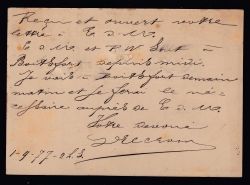 Reçu et ouvert votre
lettre à E S. W.
E S. W. et P W sont à
Boitsfort depuis midi.
Je vais à Boitsfort demain
matin et je ferai le né-
cessaire auprès de E S. W.
Votre dévoué
1-9-77